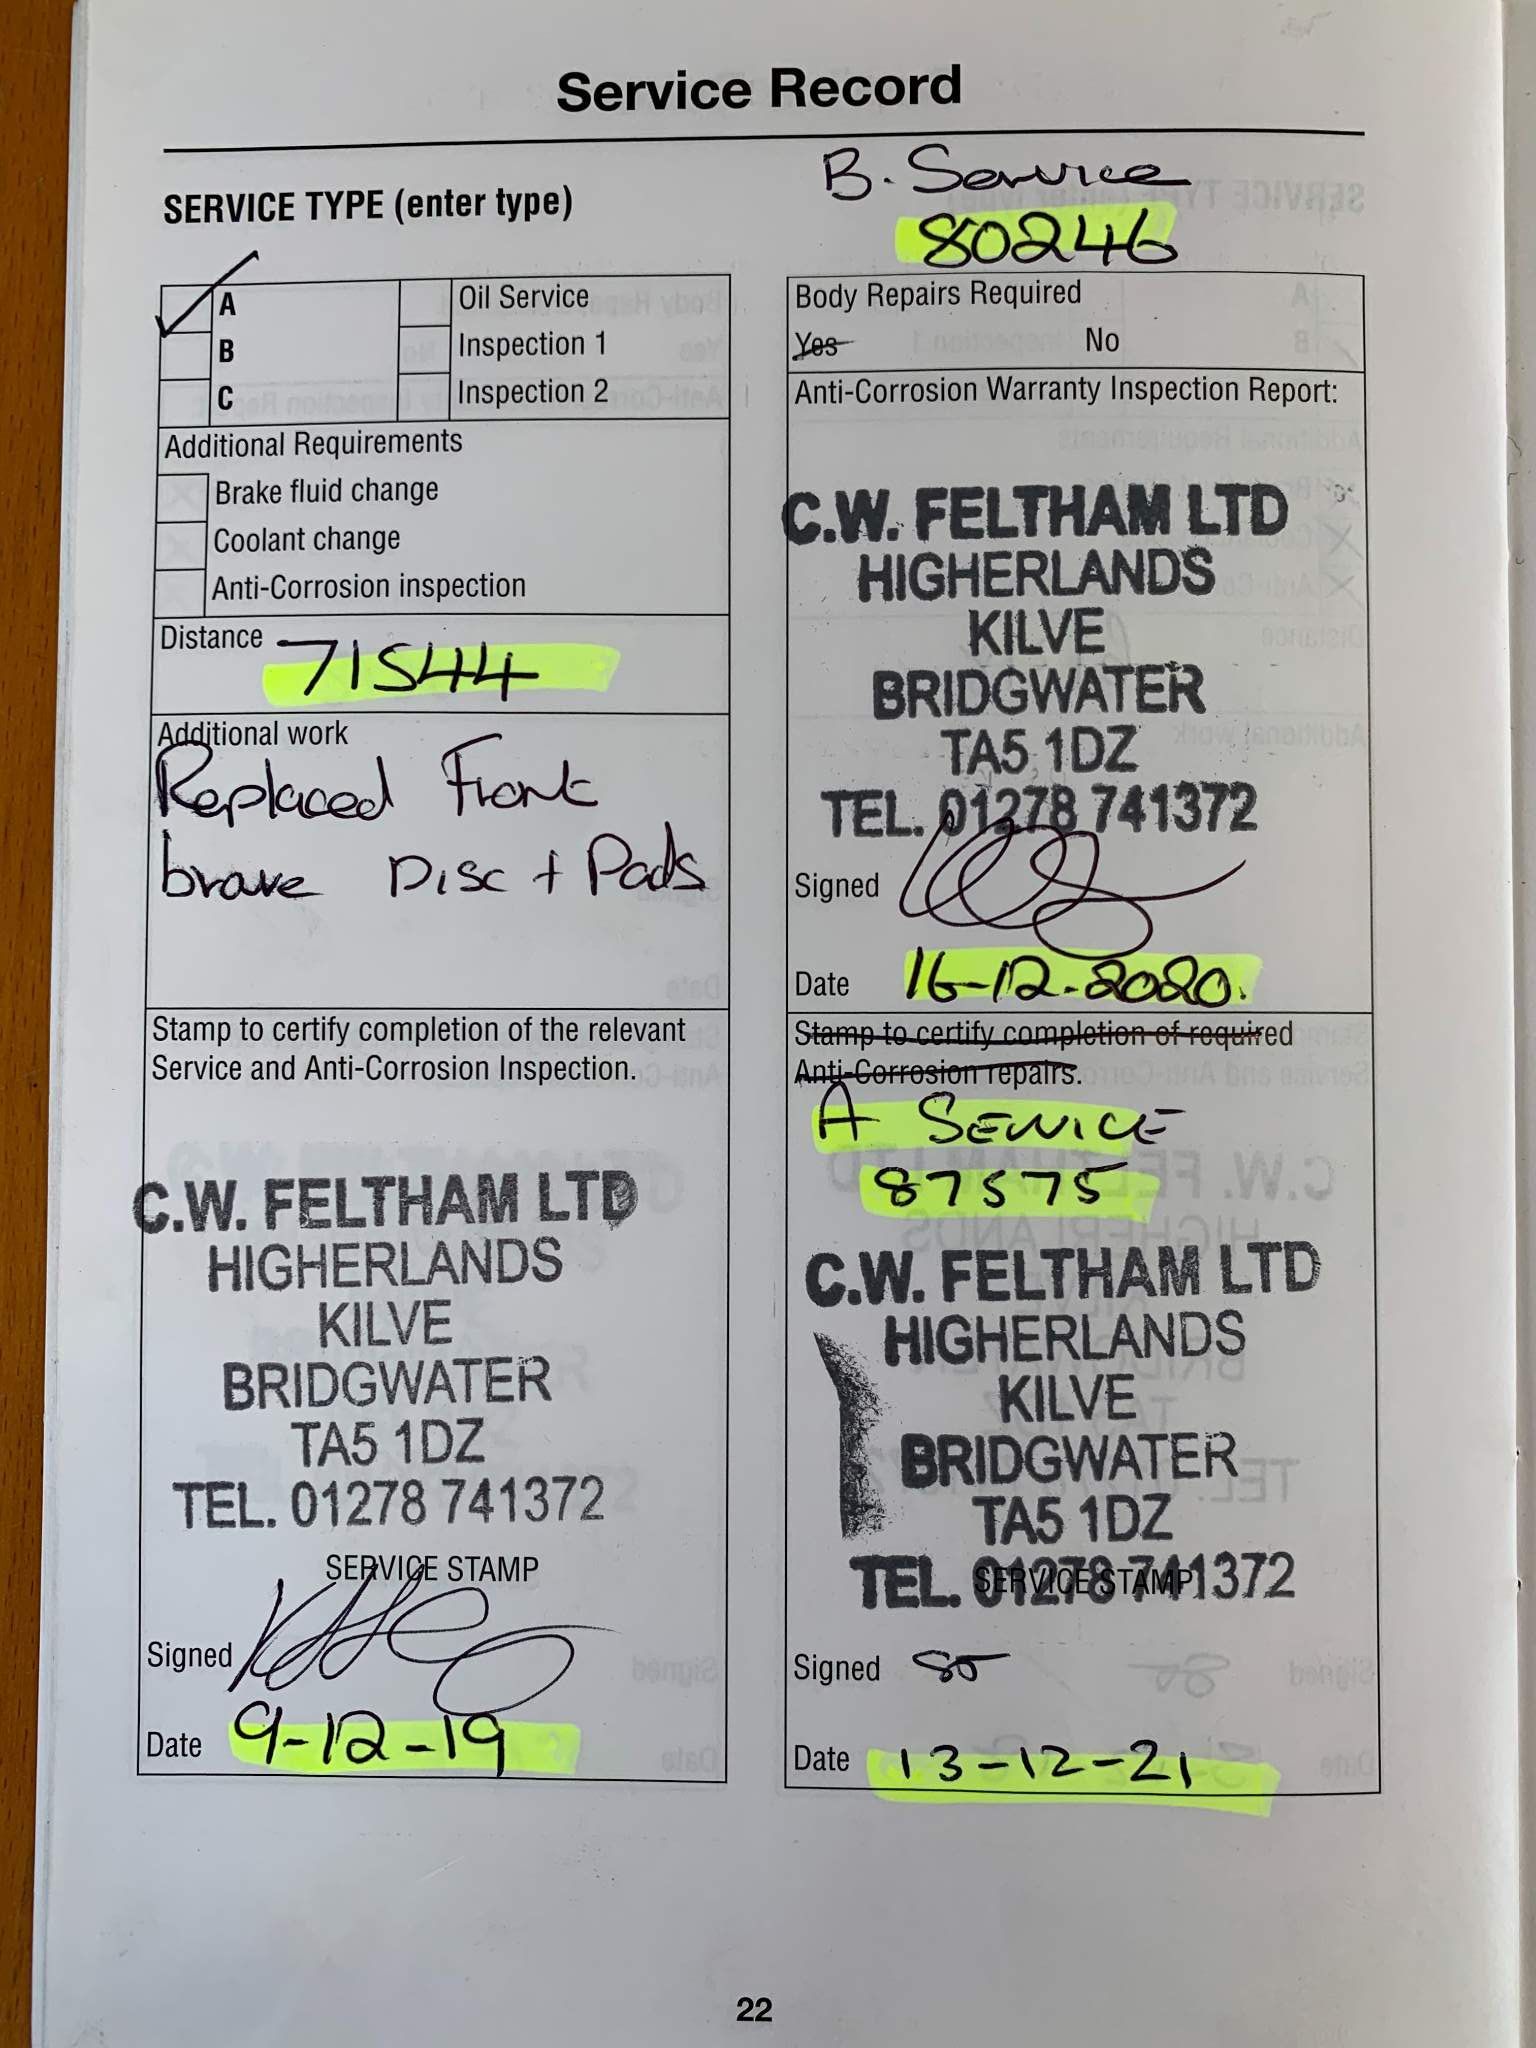 Service Record
SERVICE TYPE (enter type)
A
B
C
Oil Service
Inspection 1
Inspection 2
Additional Requirements
Brake fluid change
Coolant change
Anti-Corrosion inspection
Distance 71544
Additional work
Replaced Front
brake Disc + Pads
Stamp to certify completion of the relevant
Service and Anti-Corrosion Inspection.
C.W. FELTHAM LTD
HIGHERLANDS
KILVE
BRIDGWATER
TA5 1DZ
TEL. 01278 741372
SERVICE STAMP
Signed
Date 9-12-19
B. Service
80246
Body Repairs Required
Yes No
Anti-Corrosion Warranty Inspection Report:
C.W. FELTHAM LTD
HIGHERLANDS
KILVE
BRIDGWATER
TA5 1DZ
TEL. 01278 741372
Signed
Date 16-12-2020.
Stamp to certify completion of required
Anti-Corrosion repairs.
A SERVICE
87575
C.W. FELTHAM LTD
HIGHERLANDS
KILVE
BRIDGWATER
TA5 1DZ
TEL. 01278 741372
SERVICE STAMP
Signed
Date 13-12-21
22